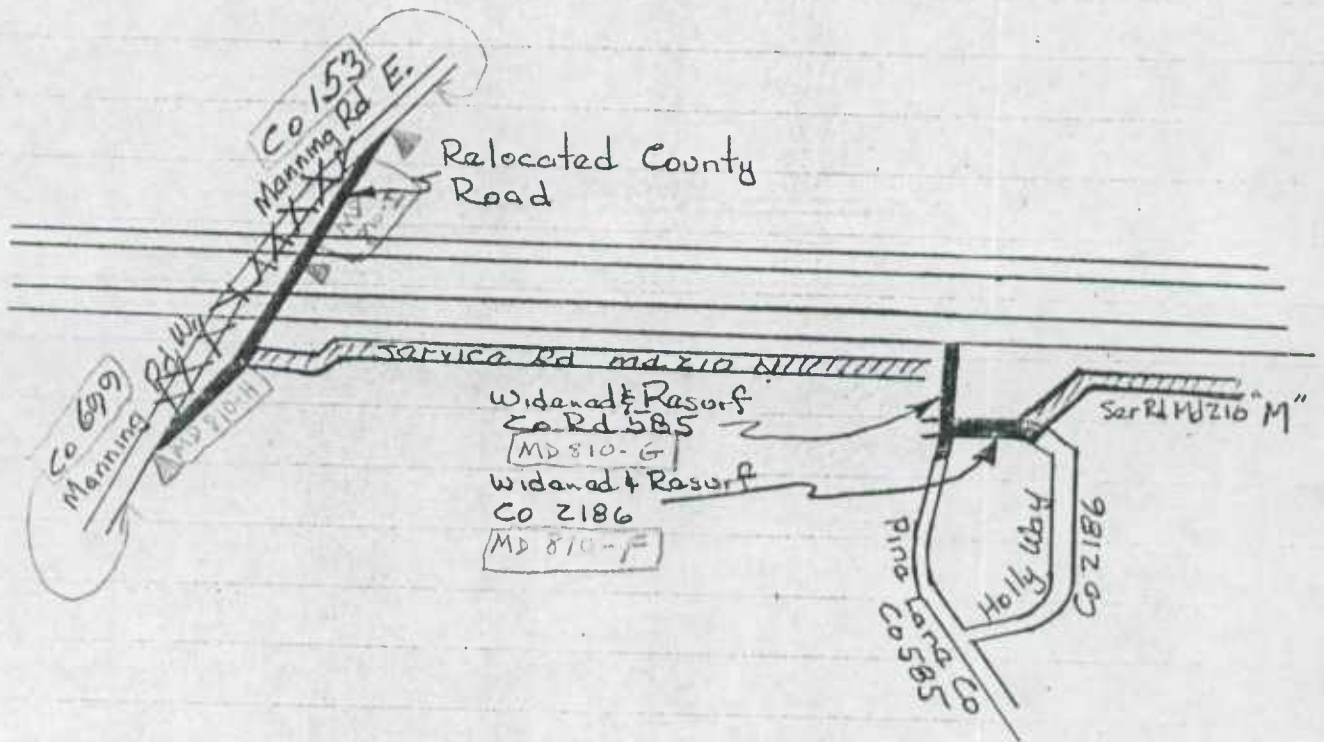 Co 153
Manning Rd E.
Relocated County
Road
Co 699
Manning Rd W
MD 810-H
Service Rd Md 210 N
Widened & Resurf
Co Rd 585
MD 810-G
Widened & Resurf
Co 2186
MD 810-F
Ser Rd Md 210 "M"
Holly Way
Co 2186
Pine Lane Co
Co 585